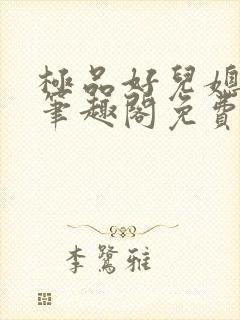 極品好兒媳
筆趣閣免費
李鷺雅